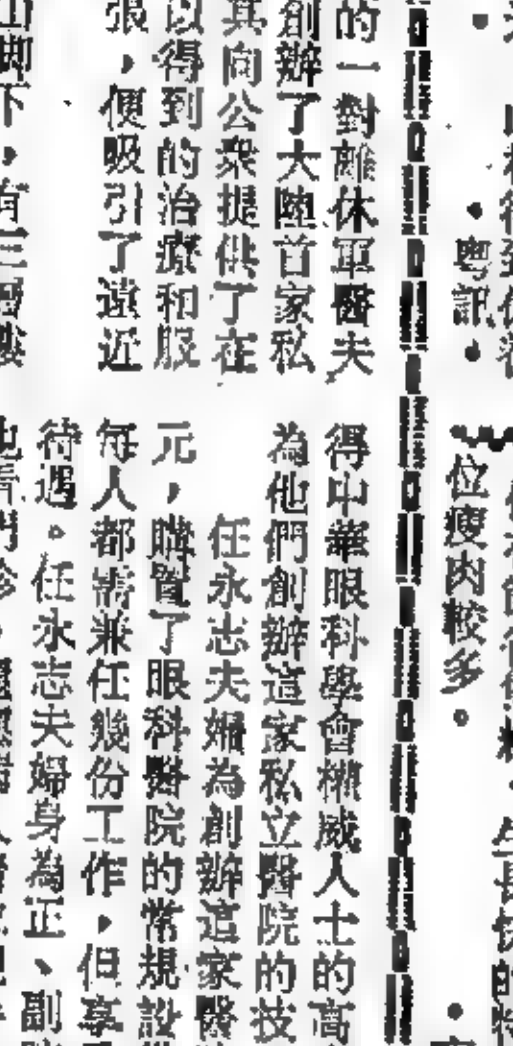 粵訊
的一對離休軍醫夫
創辦了大陸首家私
其向公衆提供了在
以得到的治療和服
張，便吸引了遠近
山脚下，有三層樓
位瘦肉較多。
得中華眼科學會權威人士的高
為他們創辦這家私立醫院的技
任永志夫婦為創辦這家醫
元，購置了眼科醫院的常規設
每人都需兼任幾份工作，但享
待遇。任永志夫婦身為正、副